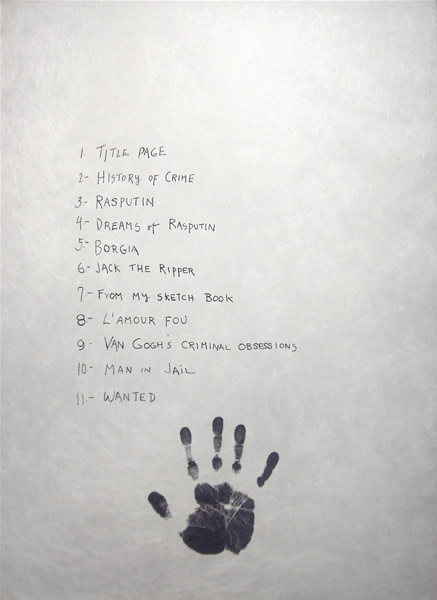 1. TITLE PAGE
2- HISTORY OF CRIME
3.- RASPUTIN
4- DREAMS of RASPUTIN
5.- BORGIA
6- JACK THE RIPPER
7.- FROM MY SKETCH BOOK
8- L'AMOUR FOU
9- VAN GOGH'S CRIMINAL OBSESSIONS
10- MAN IN JAIL
11.- WANTED